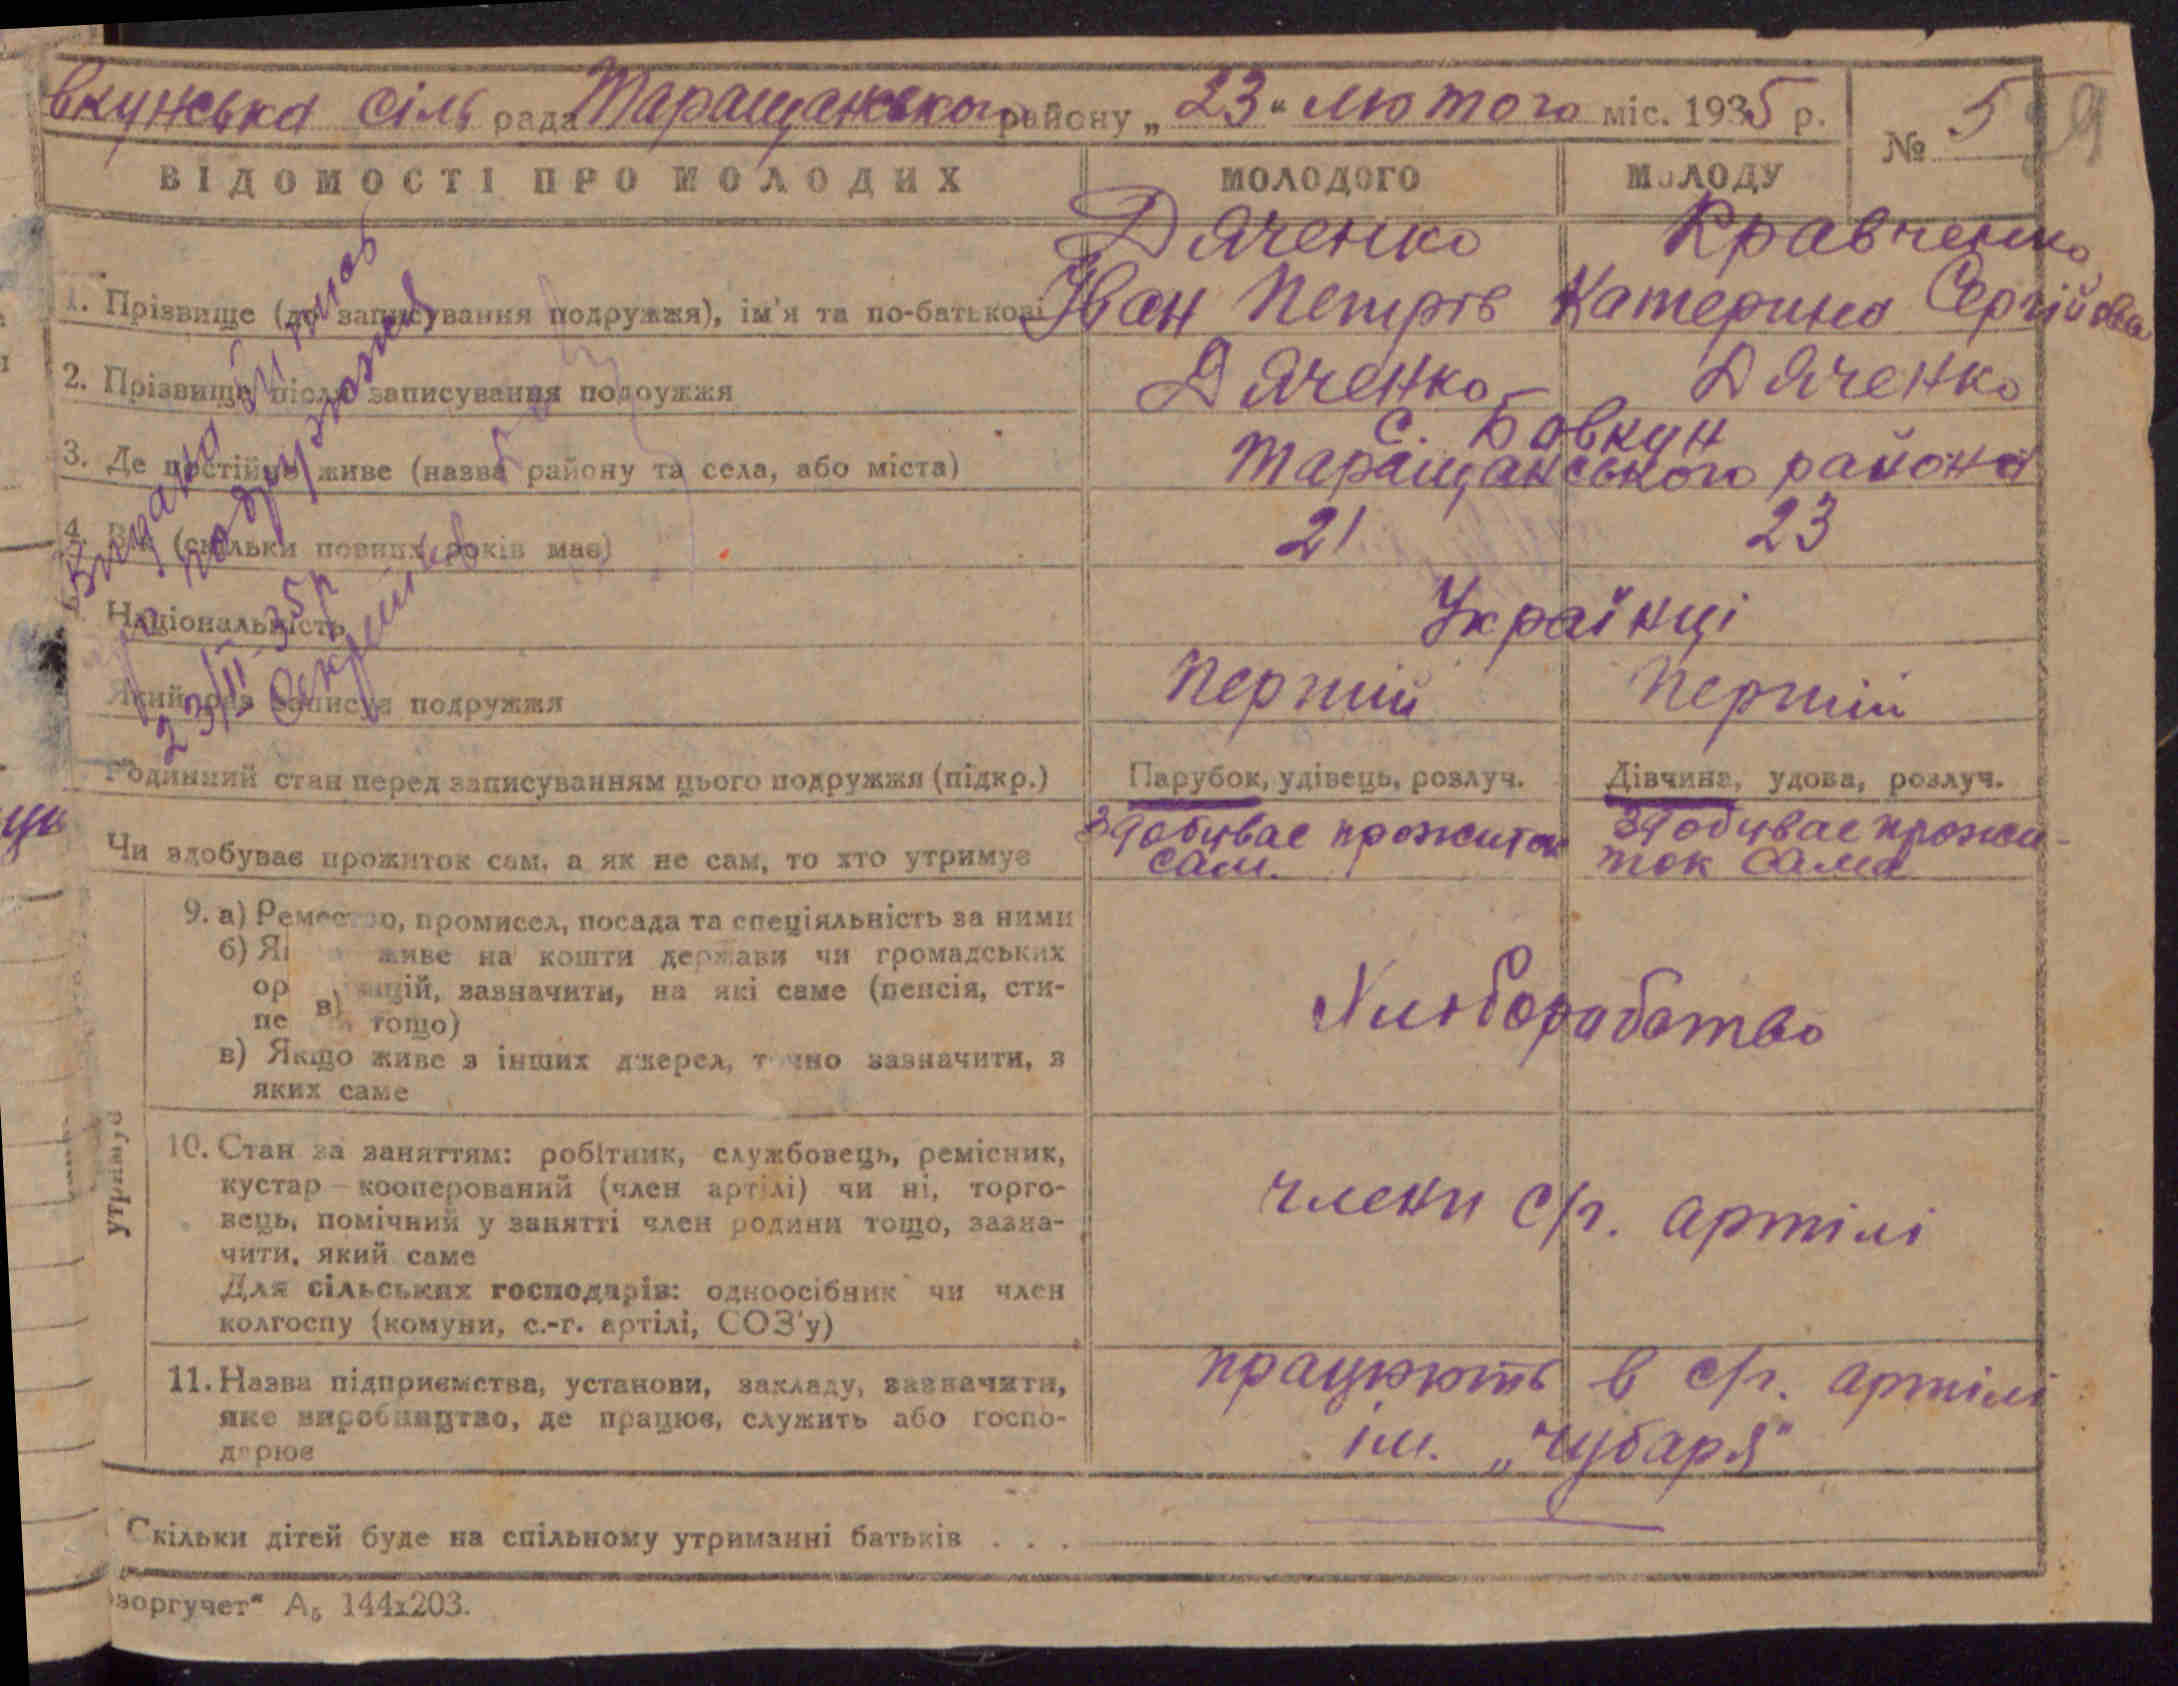 вкунська сіль рада Таращанського району „23" лютого міс. 1935 р.
№ 5
9
ВІДОМОСТІ ПРО МОЛОДИХ МОЛОДОГО МОЛОДУ
Дяченко Кравченко
1. Прізвище (до записування подружжя), ім'я та по-батькові Іван Петрів Катерина Сергійова
2. Прізвище після записування подружжя Дяченко Дяченко
с. Бовкун
3. Де постійно живе (назва району та села, або міста) Таращанського района
4. Вік (скільки повних років має) 21 23
Національність Українці
Який раз записує подружжя Перший Перший
Родинний стан перед записуванням цього подружжя (підкр.) Парубок, удівець, розлуч. Дівчина, удова, розлуч.
Чи здобуває прожиток сам, а як не сам, то хто утримує здобуває прожиток сам. здобуває прожиток сама
9. а) Ремество, промисел, посада та спеціяльність за ними
б) Я живе на кошти держави чи громадських
ор зацій, зазначити, на які саме (пенсія, сти-
пе в) тощо)
в) Якщо живе з інших джерел, точно зазначити, з
яких саме
Хлиборабатво
утримує
10. Стан за заняттям: робітник, службовець, ремісник,
кустар — кооперований (член артілі) чи ні, торго-
вець, помічний у занятті член родини тощо, зазна-
чити, який саме
Для сільських господарів: одноосібник чи член
колгоспу (комуни, с.-г. артілі, СОЗ'у)
члени с/г. артілі
11. Назва підприємства, установи, закладу, зазначити,
яке виробництво, де працює, служить або госпо-
дарює
працюють в с/г. артілі
ім. „Чубаря"
Скільки дітей буде на спільному утриманні батьків . . .
зоргучет" А₅ 144x203.
Видано
подружжя
23/II-35р
Секретар